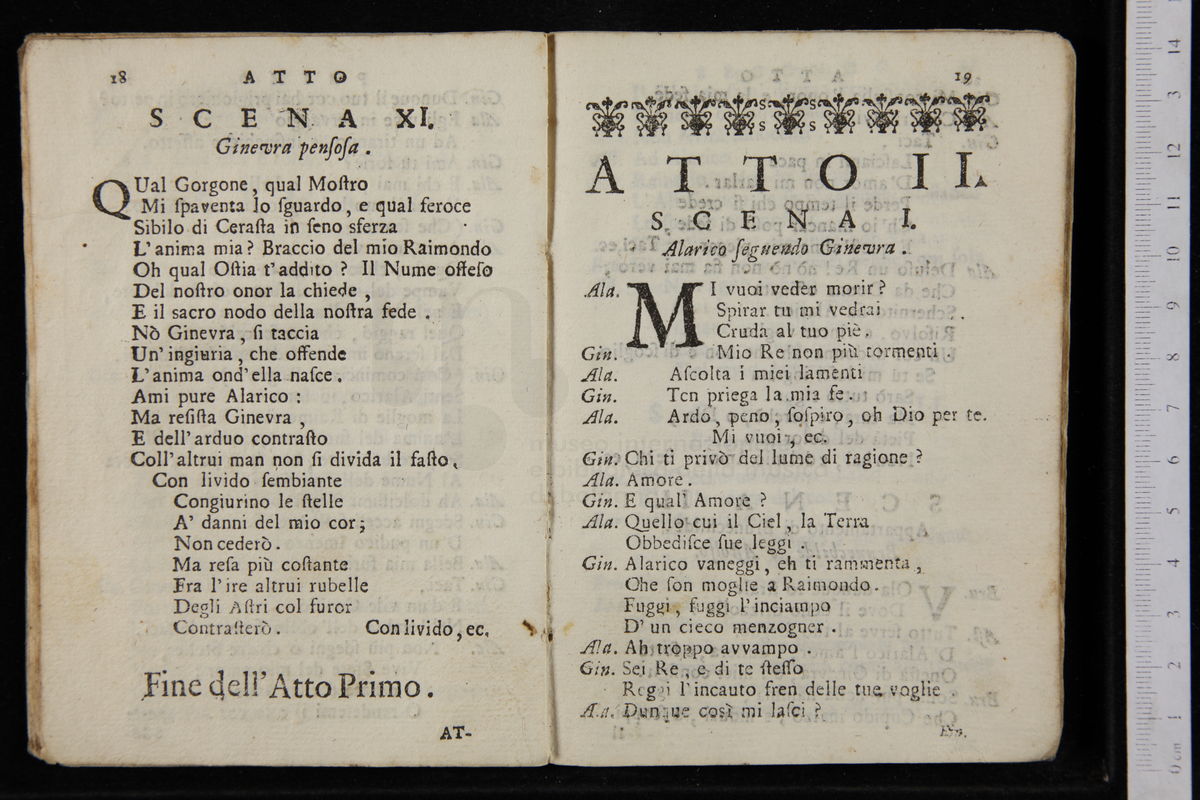 18 ATTO
SCENA XI.
Ginevra penſoſa.
QUal Gorgone, qual Moſtro
Mi ſpaventa lo ſguardo, e qual feroce
Sibilo di Ceraſta in ſeno sferza
L'anima mia? Braccio del mio Raimondo
Oh qual Oſtia t'addito? Il Nume offeſo
Del noſtro onor la chiede,
E il sacro nodo della noſtra fede.
Nò Ginevra, ſi taccia
Un'ingiuria, che offende
L'anima ond'ella naſce.
Ami pure Alarico:
Ma reſiſta Ginevra,
E dell'arduo contraſto
Coll'altrui man non ſi divida il faſto.
Con livido ſembiante
Congiurino le ſtelle
A' danni del mio cor;
Non cederò.
Ma reſa più coſtante
Fra l'ire altrui rubelle
Degli Aſtri col furor
Contraſterò. Con livido, ec.
Fine dell'Atto Primo.
AT-
19
ATTO II.
SCENA I.
Alarico ſeguendo Ginevra.
Ala. MI vuoi veder morir?
Spirar tu mi vedrai
Cruda al tuo piè.
Gin. Mio Re non più tormenti.
Ala. Aſcolta i miei lamenti
Gin. Ten priega la mia fe.
Ala. Ardo, peno, ſoſpiro, oh Dio per te.
Mi vuoi, ec.
Gin. Chi ti privò del lume di ragione?
Ala. Amore.
Gin. E qual' Amore?
Ala. Quello cui il Ciel, la Terra
Obbediſce ſue leggi.
Gin. Alarico vaneggi, eh ti rammenta,
Che ſon moglie a Raimondo.
Fuggi, fuggi l'inciampo
D'un cieco menzogner.
Ala. Ah troppo avvampo.
Gin. Sei Re, e di te ſteſſo
Reggi l'incauto fren delle tue voglie.
Ala. Dunque così mi laſci?